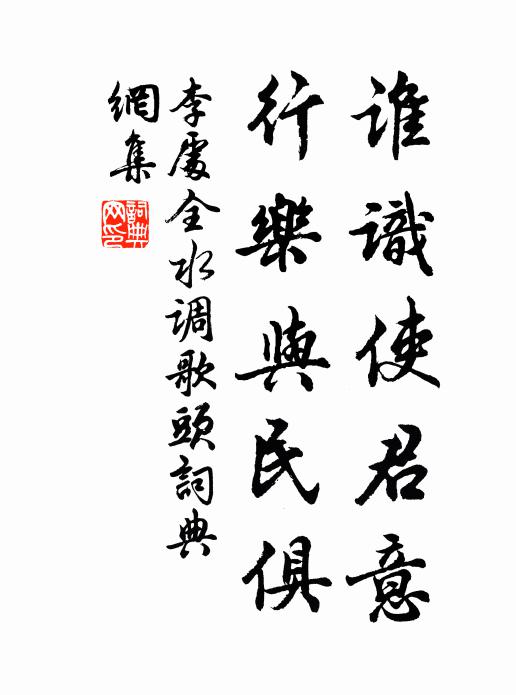 誰識使君意
行樂與民俱
李處全水调歌頭詞典
網集
詞典
网印